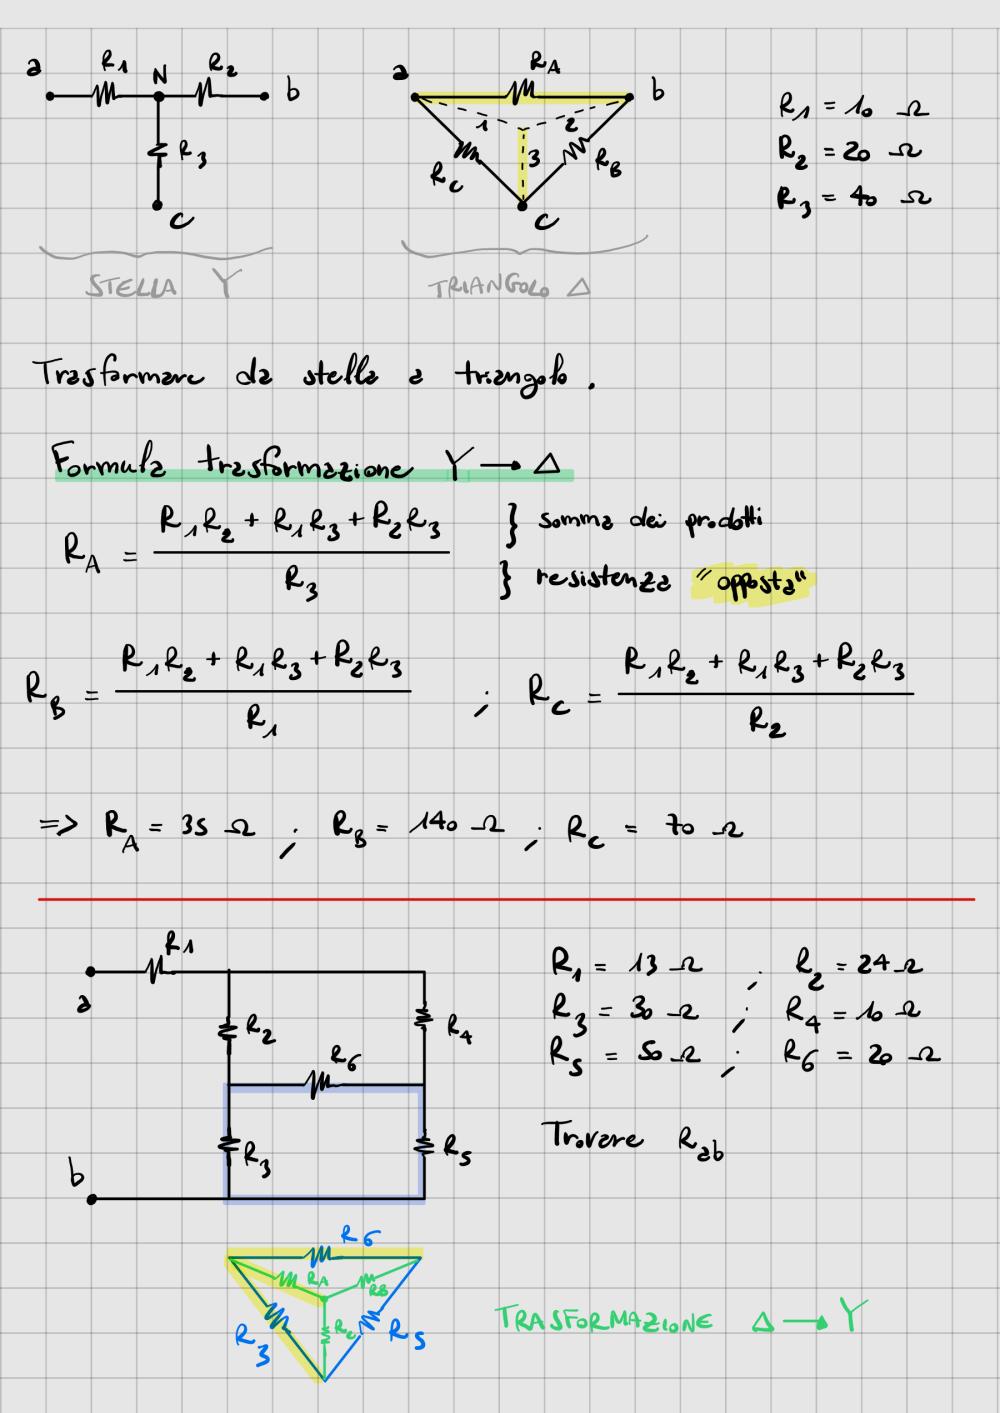 a R1 N R2 b
R3
c
STELLA Y
a RA b
1 2
3
RC RB
c
TRIANGOLO Δ
R1 = 10 Ω
R2 = 20 Ω
R3 = 40 Ω
Trasformare da stella a triangolo.
Formula trasformazione Y → Δ
RA = (R1R2 + R1R3 + R2R3) / R3
} somma dei prodotti
} resistenza "opposta"
RB = (R1R2 + R1R3 + R2R3) / R1 ; RC = (R1R2 + R1R3 + R2R3) / R2
=> RA = 35 Ω ; RB = 140 Ω ; RC = 70 Ω
R1
a
R2 R4
R6
R3 R5
b
R1 = 13 Ω ; R2 = 24 Ω
R3 = 30 Ω ; R4 = 10 Ω
R5 = 50 Ω ; R6 = 20 Ω
Trovare Rab
R6
RA RB
R3 RC R5
TRASFORMAZIONE Δ → Y